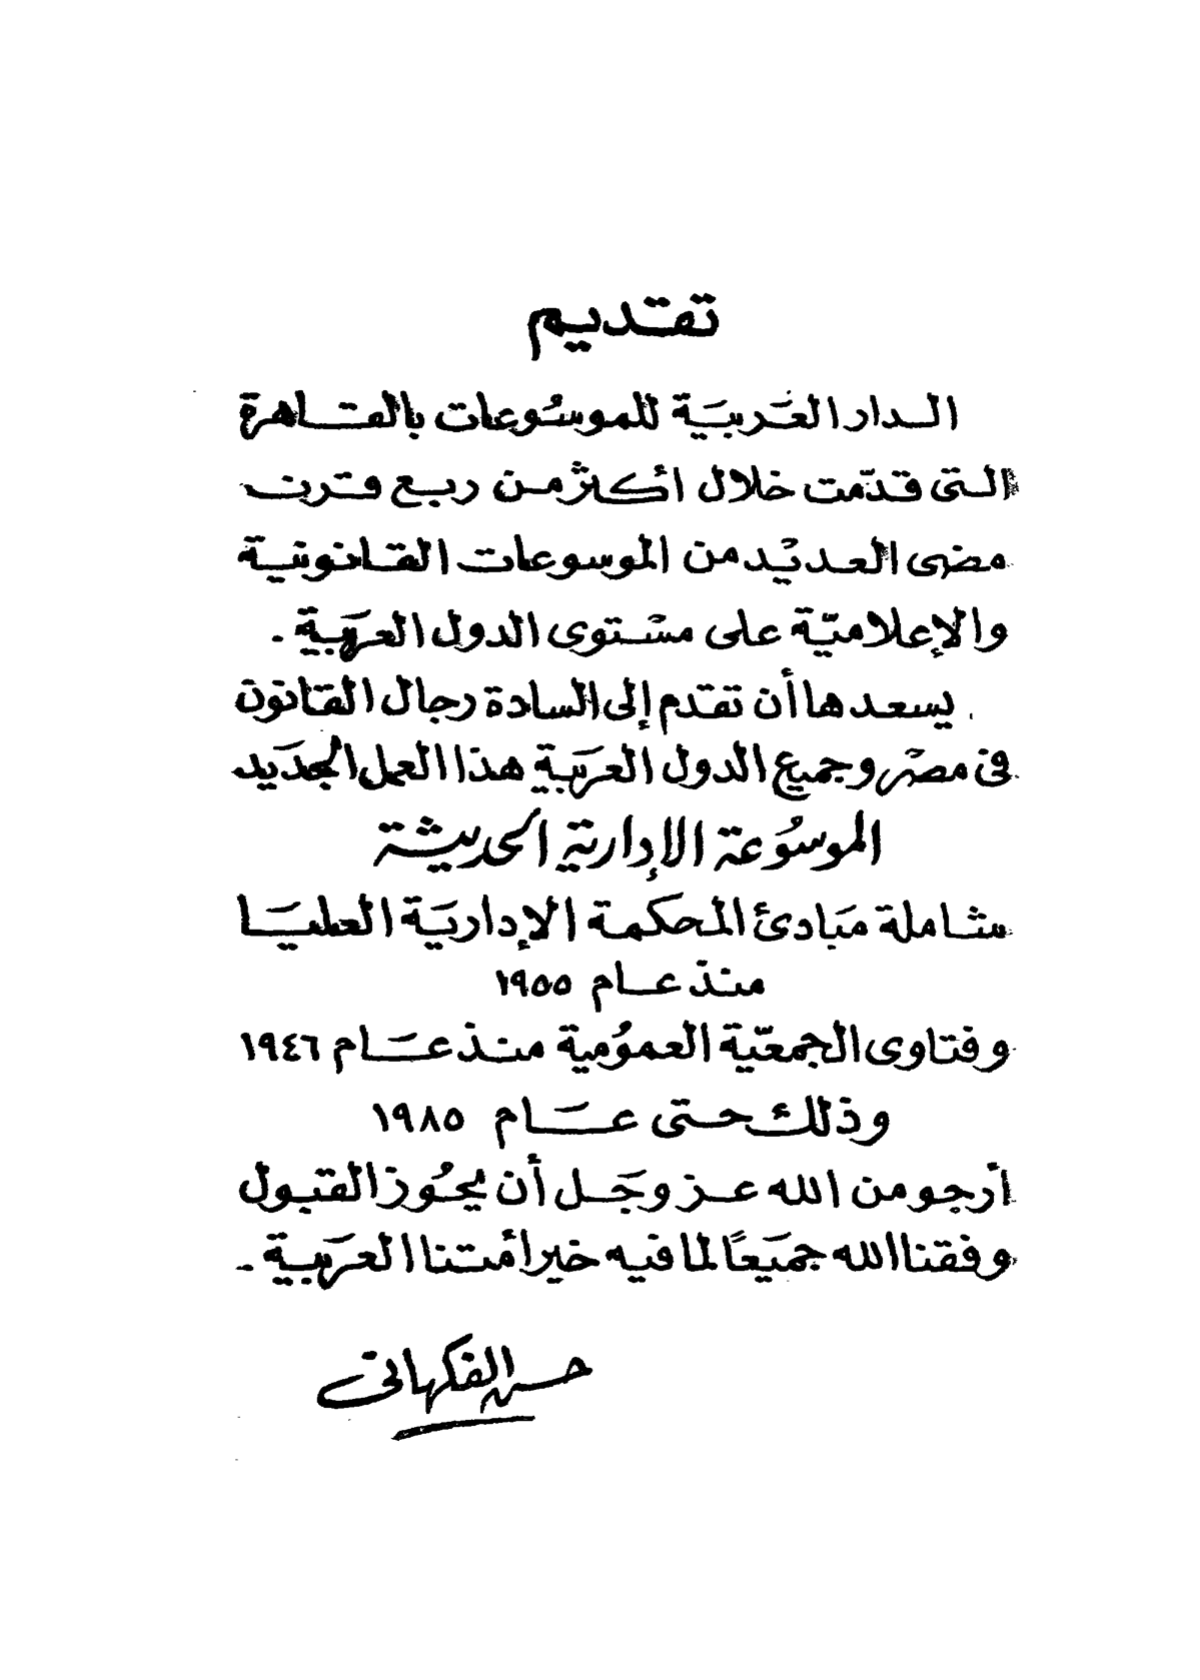 تقديم
الدار العربية للموسوعات بالقاهرة
التى قدّمت خلال أكثر من ربع قرن
مضى العديد من الموسوعات القانونية
والإعلاميّة على مستوى الدول العربية .
يسعدها أن تقدم إلى السادة رجال القانون
فى مصر وجميع الدول العربية هذا العمل الجديد
الموسوعة الإدارية الحديثة
شاملة مبادئ المحكمة الإدارية العليا
منذ عام ١٩٥٥
وفتاوى الجمعيّة العمومية منذ عام ١٩٤٦
وذلك حتى عام ١٩٨٥
أرجو من الله عز وجل أن يحوز القبول
وفقنا الله جميعًا لما فيه خير أمتنا العربية .
حسن الفكهانى